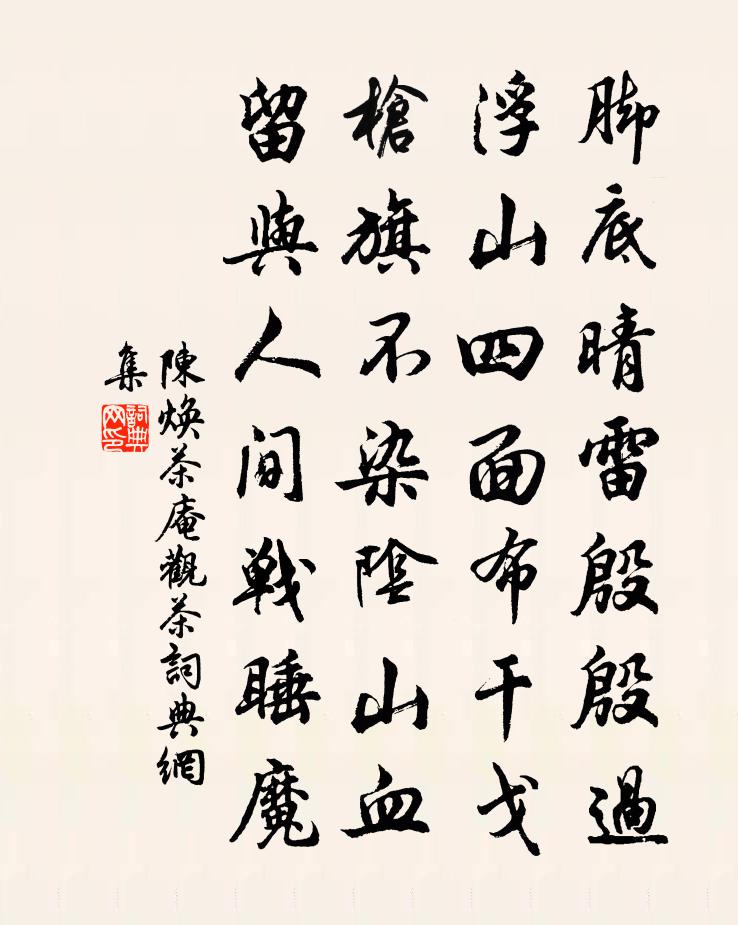 脚底晴雷殷殷過
浮山四面布干戈
槍旗不染陰山血
留與人间戰睡魔
陳煥茶庵觀茶詞典網
集
詞典網印